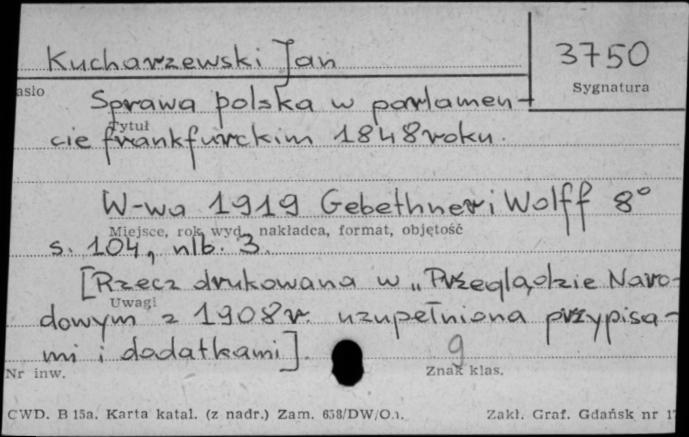 Kucharzewski Jan
3750
asło
Sygnatura
Sprawa polska w parlamen-
Tytuł
cie frankfurckim 1848 roku.
W-wa 1919 Gebethner i Wolff 8°
Miejsce, rok wyd., nakładca, format, objętość
s. 104, nlb. 3.
[Rzecz drukowana w „Przeglądzie Naro-
Uwagi
dowym z 1908 r. uzupełniona przypisa-
mi i dodatkami].
9
Nr inw.
Znak klas.
CWD. B 15a. Karta katal. (z nadr.) Zam. 638/DW/O.
Zakł. Graf. Gdańsk nr 1